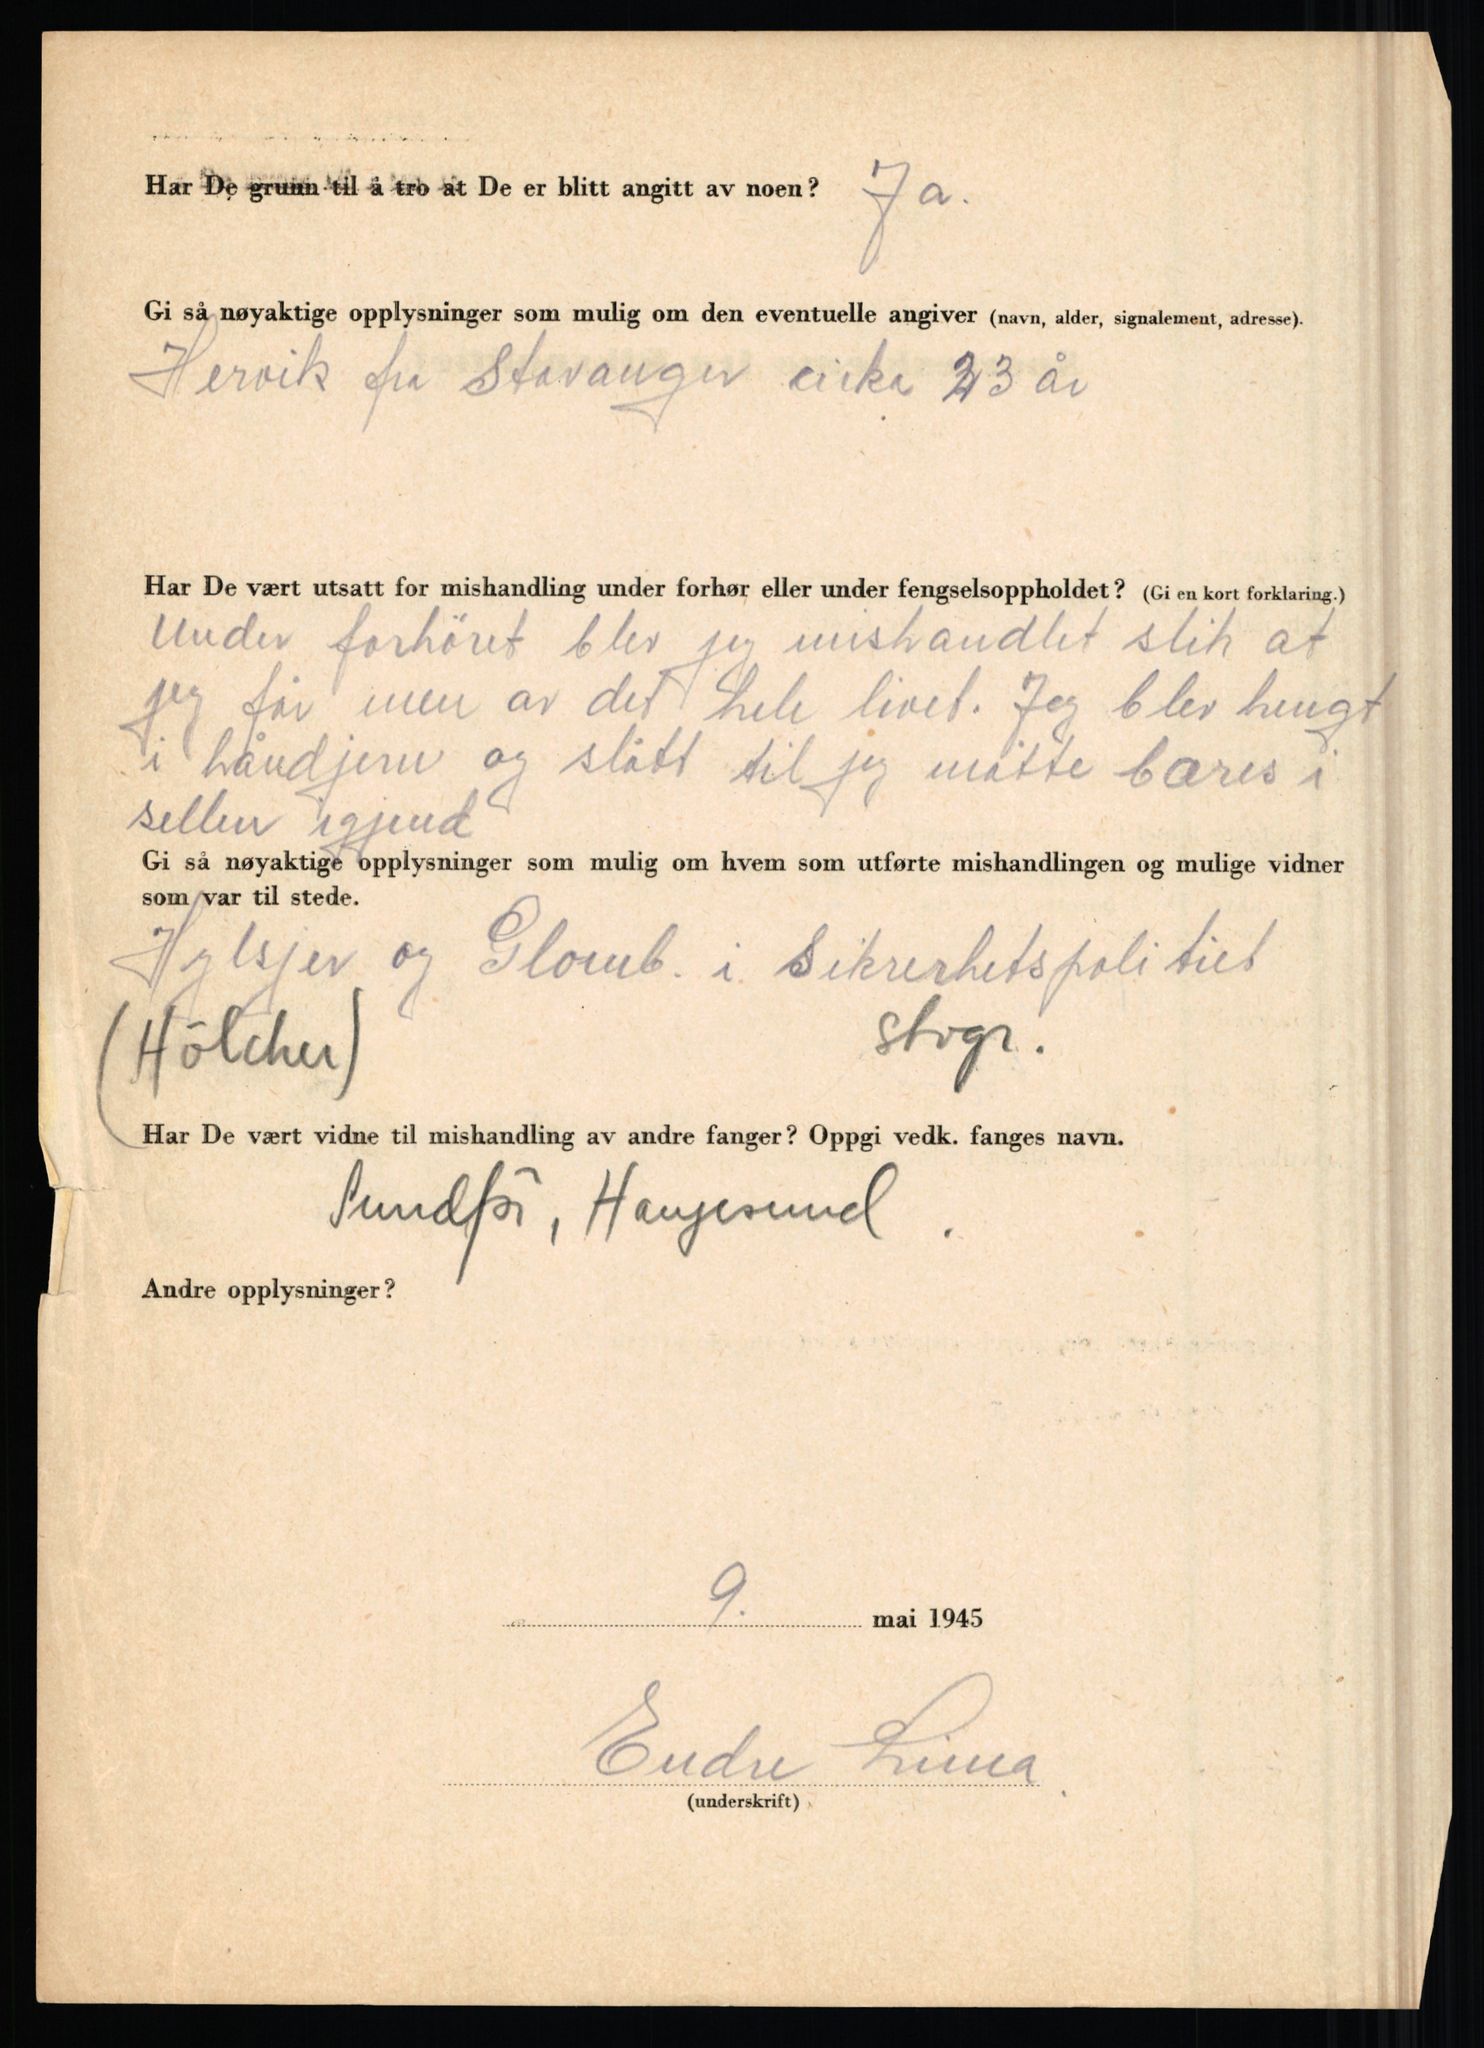 Har De grunn til å tro at De er blitt angitt av noen? Ja.
Gi så nøyaktige opplysninger som mulig om den eventuelle angiver (navn, alder, signalement, adresse).
Hervik fra Stavanger cirka 23 år
Har De vært utsatt for mishandling under forhør eller under fengselsoppholdet? (Gi en kort forklaring.)
Under forhöret blev jeg mishandlet slik at
jeg får men av det hele livet. Jeg blev hengt
i håndjern og slått til jeg måtte bæres i
sellen igjend
Gi så nøyaktige opplysninger som mulig om hvem som utførte mishandlingen og mulige vidner
som var til stede.
Hylsjer og Glomb. i Sikrerhetspolitiet
(Hölcher) Stvgr.
Har De vært vidne til mishandling av andre fanger? Oppgi vedk. fanges navn.
Sundför, Haugesund.
Andre opplysninger?
9. mai 1945
Endre Lima
(underskrift)